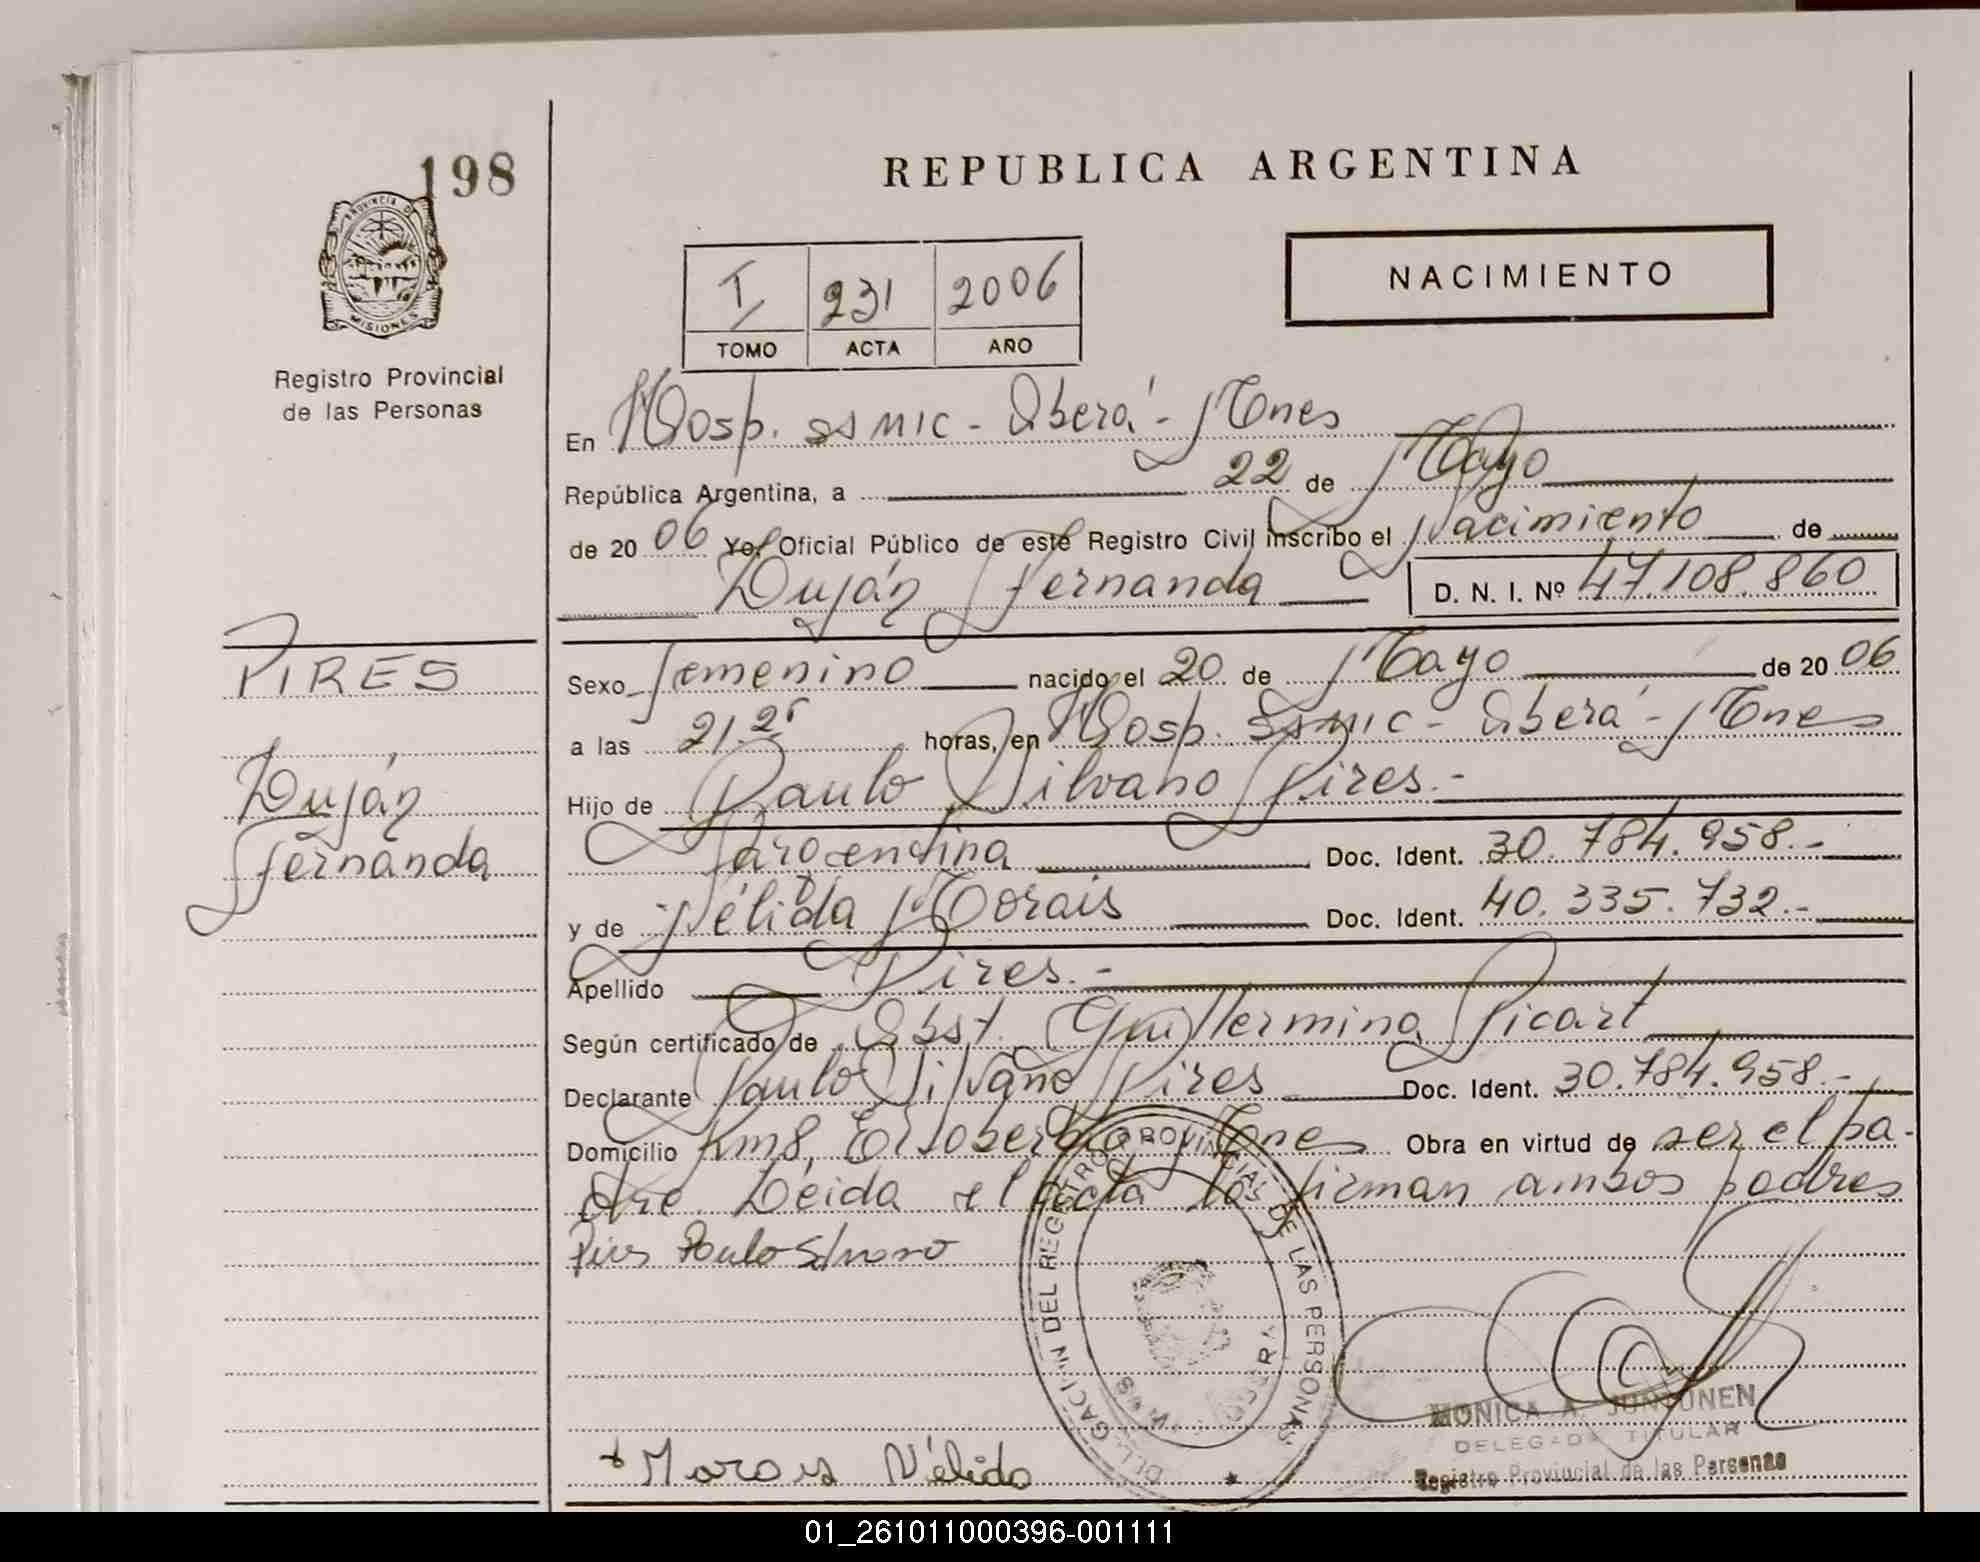 198
PROVINCIA DE
MISIONES
Registro Provincial
de las Personas
REPUBLICA ARGENTINA
I 231 2006
TOMO ACTA AÑO
NACIMIENTO
En Hosp. SSMIC - Oberá - Mnes
República Argentina, a 22 de Mayo
de 20 06 Yo, Oficial Público de este Registro Civil inscribo el Nacimiento de
Luján Fernanda D. N. I. Nº 47.108.860
PIRES
Luján
Fernanda
Sexo femenino nacido el 20 de Mayo de 20 06
a las 21.25 horas, en Hosp. SSMIC - Oberá - Mnes
Hijo de Paulo Silvano Pires.-
Argentina Doc. Ident. 30.784.958.-
y de Nélida Morais Doc. Ident. 40.335.732.-
Apellido Pires.-
Según certificado de Obst. Guillermina Picart
Declarante Paulo Silvano Pires Doc. Ident. 30.784.958.-
Domicilio Km 8, Mnes Obra en virtud de ser el pa-
dre. Leida el acta los firman ambos padres
Pires Paulo Silvano
DELEGACION DEL REGISTRO PROVINCIAL DE LAS PERSONAS
MONICA A. JUNTUNEN
DELEGADA TITULAR
Registro Provincial de las Personas
+ Morais Nélida
01_261011000396-001111